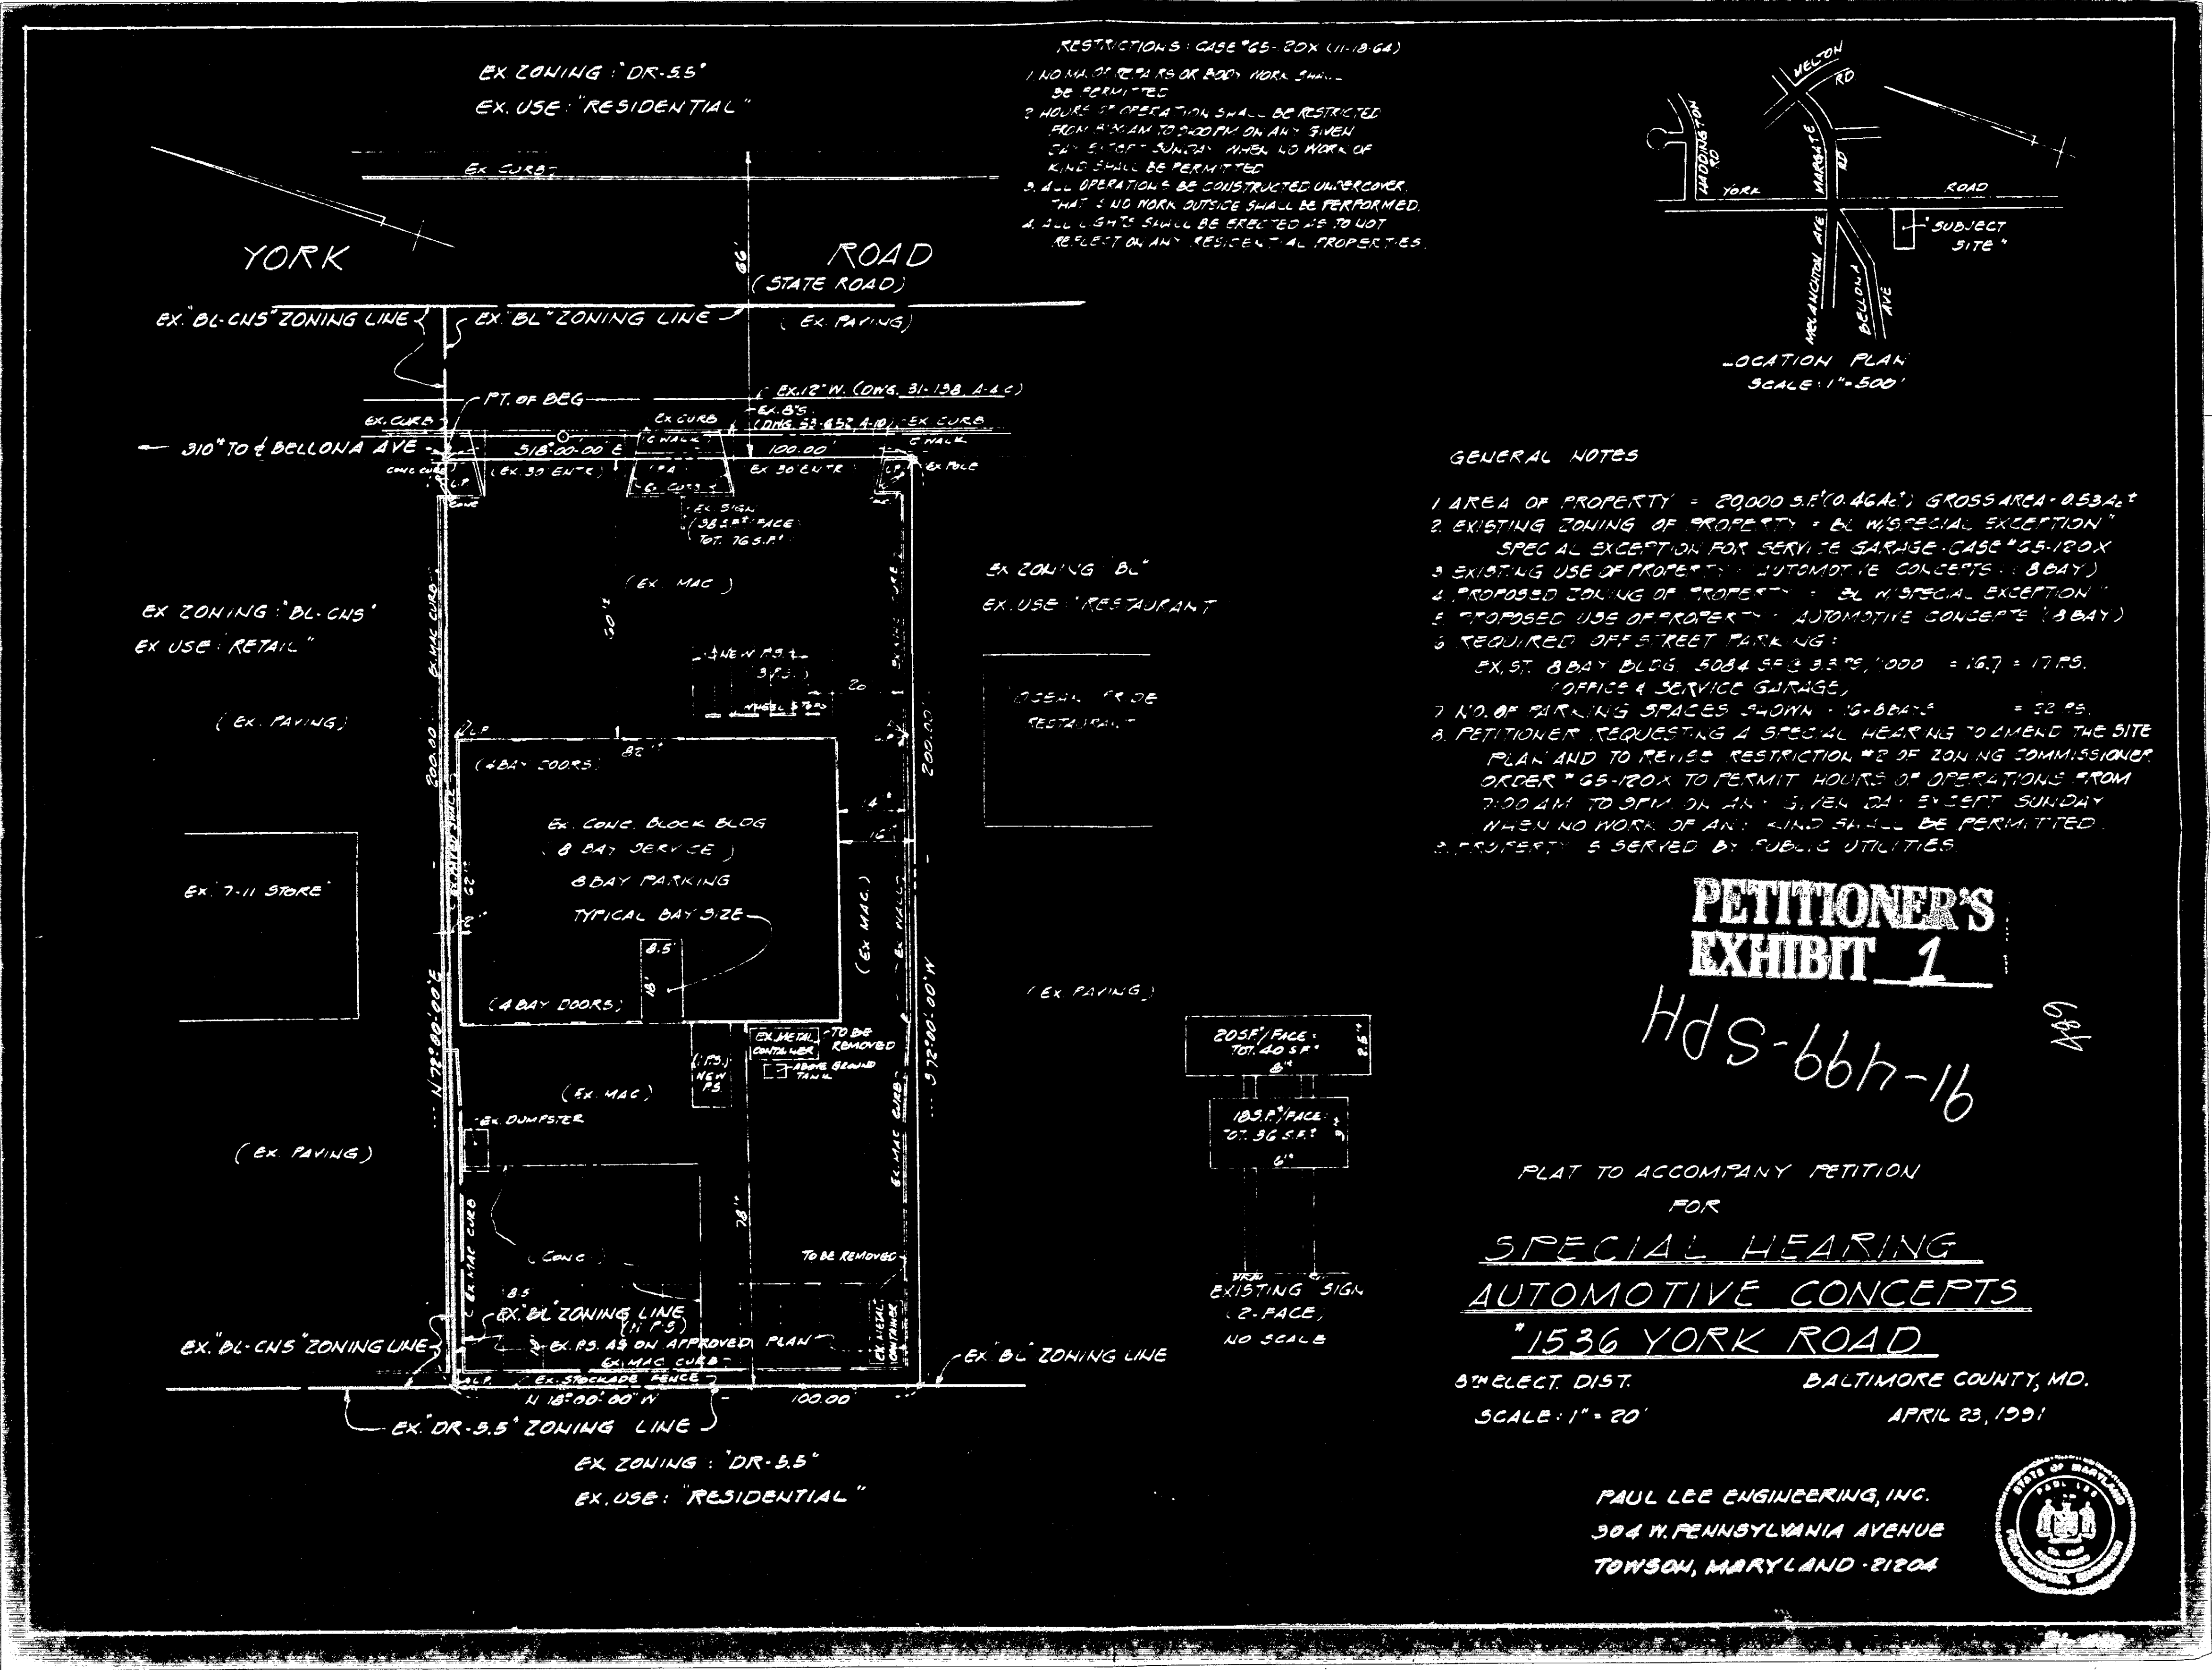 EX ZONING : "DR-5.5"
EX. USE : "RESIDENTIAL"
EX CURB
YORK ROAD
(STATE ROAD)
66'
EX. "BL-CNS" ZONING LINE
EX. "BL" ZONING LINE
(EX. PAVING)
PT. OF BEG
EX. 12" W. (DWG. 31-138, A-4 C)
EX. CURB
EX CURB
EX. 8"S.
(DWG. 53-652, A-10)
EX CURB
C WALK
C WALK
310'± TO ₵ BELLONA AVE
S18°-00'-00" E
100.00'
CONC CURB
L.P
(EX. 30 ENTR)
EX 30 ENTR)
L.P.
EX POLE
EX SIGN
(38 S.F.±/FACE
TOT. 76 S.F.±
(EX MAC)
60'±
EX ZONING : "BL-CNS"
EX USE : RETAIL"
EX MAC CURB
(EX. PAVING)
200.00
EX ZONING "BL"
EX. USE "RESTAURANT
OCEAN PRIDE
RESTAURANT
NEW P.S.
(3 P.S.)
WHEEL STOPS
20
L.P
200.00'
82'±
(4 BAY DOORS)
EX. CONC. BLOCK BLDG
(8 BAY SERVICE)
8 BAY PARKING
TYPICAL BAY SIZE
8.5'
18'
(4 BAY DOORS)
62'±
2'±
14'±
16'
(EX MAC.)
EX WALL
EX. 7-11 STORE"
N 72°-00'-00" E
S 72°-00'-00" W
(EX PAVING)
(1 P.S.)
NEW
P.S.
EX. METAL
CONTAINER
TO BE
REMOVED
ABOVE GROUND
TANK
(EX. MAC)
EX. DUMPSTER
EX. MAC CURB
(EX. PAVING)
78'±
EX. MAC CURB
(CONC)
TO BE REMOVED
EX METAL
CONTAINER
8.5
EX. "BL" ZONING LINE
(11 P.S)
EX. "BL-CNS" ZONING LINE
EX. P.S. AS ON APPROVED PLAN
EX MAC CURB
EX "BL" ZONING LINE
L.P.
EX. STOCKADE FENCE
N 18°-00'-00" W
100.00'
EX. "DR-5.5" ZONING LINE
EX ZONING : "DR-5.5"
EX. USE : "RESIDENTIAL"
RESTRICTIONS : CASE # 65-120X (11-18-64)
1. NO MAJOR REPAIRS OR BODY WORK SHALL
BE PERMITTED
2. HOURS OF OPERATION SHALL BE RESTRICTED
FROM 8:30 AM TO 9:00 PM ON ANY GIVEN
DAY EXCEPT SUNDAY WHEN NO WORK OF
KIND SHALL BE PERMITTED
3. ALL OPERATIONS BE CONSTRUCTED UNDERCOVER,
THAT IS NO WORK OUTSIDE SHALL BE PERFORMED.
4. ALL LIGHTS SHALL BE ERECTED AS TO NOT
REFLECT ON ANY RESIDENTIAL PROPERTIES.
MELTON
RD
HADDINGTON
RD
MARGATE
RD
YORK ROAD
"SUBJECT
SITE"
MELANCHTON AVE
BELLONA
AVE
LOCATION PLAN
SCALE : 1"=500'
GENERAL NOTES
1 AREA OF PROPERTY = 20,000 S.F.± (0.46 Ac.±) GROSS AREA = 0.53 Ac ±
2. EXISTING ZONING OF PROPERTY = BL W/SPECIAL EXCEPTION"
SPECIAL EXCEPTION FOR SERVICE GARAGE - CASE # 65-120X
3 EXISTING USE OF PROPERTY : AUTOMOTIVE CONCEPTS (8 BAY)
4. PROPOSED ZONING OF PROPERTY = BL W/SPECIAL EXCEPTION"
5. PROPOSED USE OF PROPERTY - AUTOMOTIVE CONCEPTS (8 BAY)
6 REQUIRED OFFSTREET PARKING :
EXIST. 8 BAY BLDG. 5084 SF @ 3.3 P.S./1000 = 16.7 = 17 P.S.
(OFFICE & SERVICE GARAGE)
7 NO. OF PARKING SPACES SHOWN - 16+8 BAYS = 32 P.S.
8. PETITIONER REQUESTING A SPECIAL HEARING TO AMEND THE SITE
PLAN AND TO REVISE RESTRICTION #2 OF ZONING COMMISSIONER
ORDER # 65-120X TO PERMIT HOURS OF OPERATIONS FROM
7:00 AM TO 9 PM ON ANY GIVEN DAY EXCEPT SUNDAY
WHEN NO WORK OF ANY KIND SHALL BE PERMITTED.
9. PROPERTY IS SERVED BY PUBLIC UTILITIES.
PETITIONER'S
EXHIBIT 1
91-499-SPH
489
20 S.F.±/FACE
TOT. 40 S.F.±
8'±
2.5'±
18 S.F.±/FACE
TOT. 36 S.F.±
3'±
6'±
EXISTING SIGN
(2-FACE)
NO SCALE
PLAT TO ACCOMPANY PETITION
FOR
SPECIAL HEARING
AUTOMOTIVE CONCEPTS
#1536 YORK ROAD
8TH ELECT. DIST. BALTIMORE COUNTY, MD.
SCALE : 1" = 20' APRIL 23, 1991
PAUL LEE ENGINEERING, INC.
304 W. PENNSYLVANIA AVENUE
TOWSON, MARYLAND - 21204
STATE OF MARYLAND
PAUL LEE